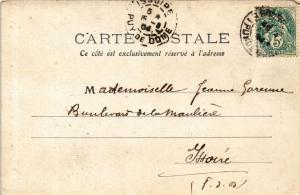 ISSOIRE
PUY-DE-DOME
CARTE POSTALE
Ce côté est exclusivement réservé à l'adresse
5
Mademoiselle Jeanne Garenne
Boulevard de la Manlière
Issoire
(P.-de-D.)